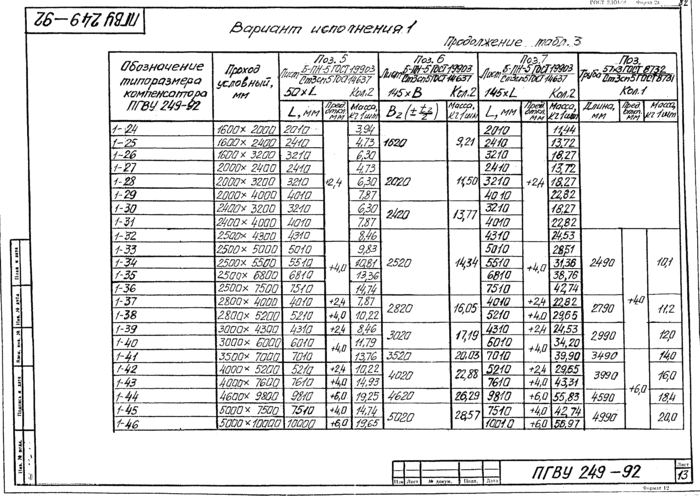 ПГВУ 249-92
Вариант исполнения 1
Продолжение табл. 3
Обозначение типоразмера компенсатора ПГВУ 249-92 | Проход условный, мм | Поз. 5 | Поз. 6 | Поз. 7 | Поз.
Лист Б-ПН-5 ГОСТ 19903 / Ст3сп5 ГОСТ 14637 | Лист Б-ПН-5 ГОСТ 19903 / Ст3сп5 ГОСТ 14637 | Лист Б-ПН-5 ГОСТ 19903 / Ст3сп5 ГОСТ 14637 | Труба 57×3 ГОСТ 8732 / Ст3сп5 ГОСТ 8731
50×L Кол. 2 | 145×B Кол. 2 | 145×L Кол. 2 | Кол. 1
L, мм | Пред. откл. мм | Масса, кг 1 шт | B₂ | Масса, кг 1 шт | L, мм | Пред. откл. мм | Масса, кг 1 шт | Длина, мм | Пред. откл. мм | Масса, кг 1 шт
1-24 1600×2000 2010 3,94 2010 11,44
1-25 1600×2400 2410 4,73 1620 9,21 2410 13,72
1-26 1600×3200 3210 6,30 3210 18,27
1-27 2000×2400 2410 4,73 2410 13,72
1-28 2000×3200 3210 ±2,4 6,30 2020 11,50 3210 ±2,4 18,27
1-29 2000×4000 4010 7,87 4010 22,82
1-30 2400×3200 3210 6,30 2420 13,77 3210 18,27
1-31 2400×4000 4010 7,87 4010 22,82
1-32 2500×4300 4310 8,46 4310 24,53
1-33 2500×5000 5010 9,83 5010 28,51
1-34 2500×5500 5510 ±4,0 10,81 2520 14,34 5510 ±4,0 31,36 2490 10,1
1-35 2500×6800 6810 13,36 6810 38,76
1-36 2500×7500 7510 14,74 7510 42,74
±4,0
1-37 2800×4000 4010 ±2,4 7,87 2820 16,05 4010 ±2,4 22,82 2790 11,2
1-38 2800×5200 5210 ±4,0 10,22 5210 ±4,0 29,65
1-39 3000×4300 4310 ±2,4 8,46 3020 17,19 4310 ±2,4 24,53 2990 12,0
1-40 3000×6000 6010 ±4,0 11,79 6010 ±4,0 34,20
1-41 3500×7000 7010 13,76 3520 20,03 7010 39,90 3490 14,0
1-42 4000×5200 5210 ±2,4 10,22 4020 22,88 5210 ±2,4 29,65 3990 16,0
1-43 4000×7600 7610 ±4,0 14,93 7610 ±4,0 43,31
±6,0
1-44 4600×9800 9810 ±6,0 19,25 4620 26,29 9810 ±6,0 55,83 4590 18,4
1-45 5000×7500 7510 ±4,0 14,74 5020 28,57 7510 ±4,0 42,74 4990 20,0
1-46 5000×10000 10000 ±6,0 19,65 10010 ±6,0 56,97
Изм Лист № докум. Подп. Дата
ПГВУ 249-92
Лист
13
Формат 12